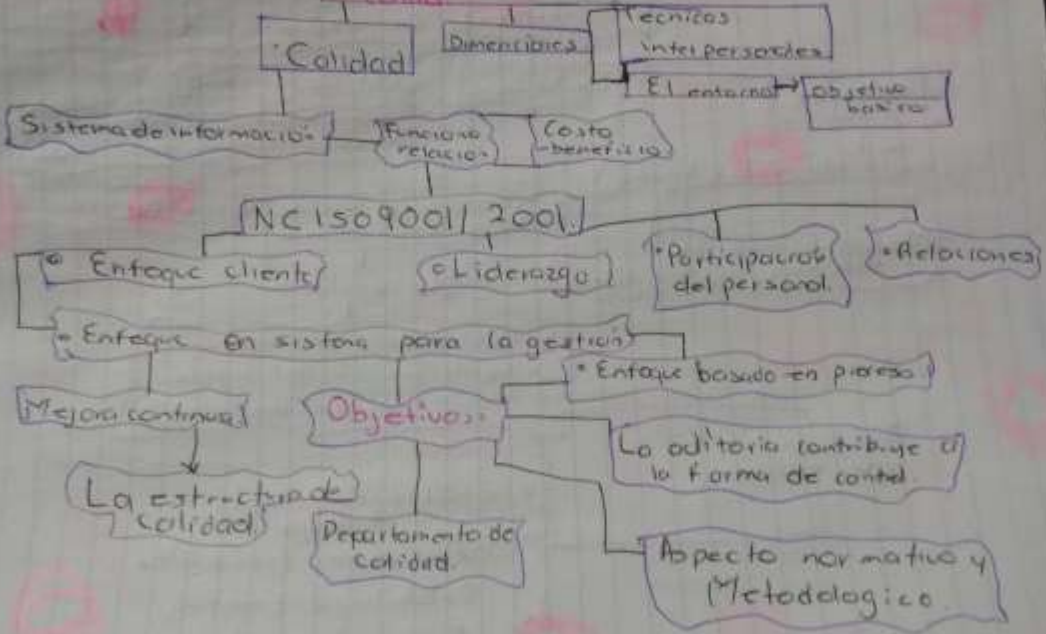 · Calidad
Dimenciones
Tecnicos
interpersonales
El entorno
objetivo
basico
Sistema de informacio.
Funciona
relacio.
Costo
-beneficio
NC ISO9001/2001.
• Enfoque cliente
• Liderazgo
• Participacion
del personal.
• Relaciones
• Enfoque en sistema para la gestion
• Enfoque basado en proceso
Mejora continua
Objetivos:
La aditoria contribuye a
la forma de control
La estructura de
calidad.
Departamento de
calidad.
Aspecto normativo y
Metodologico